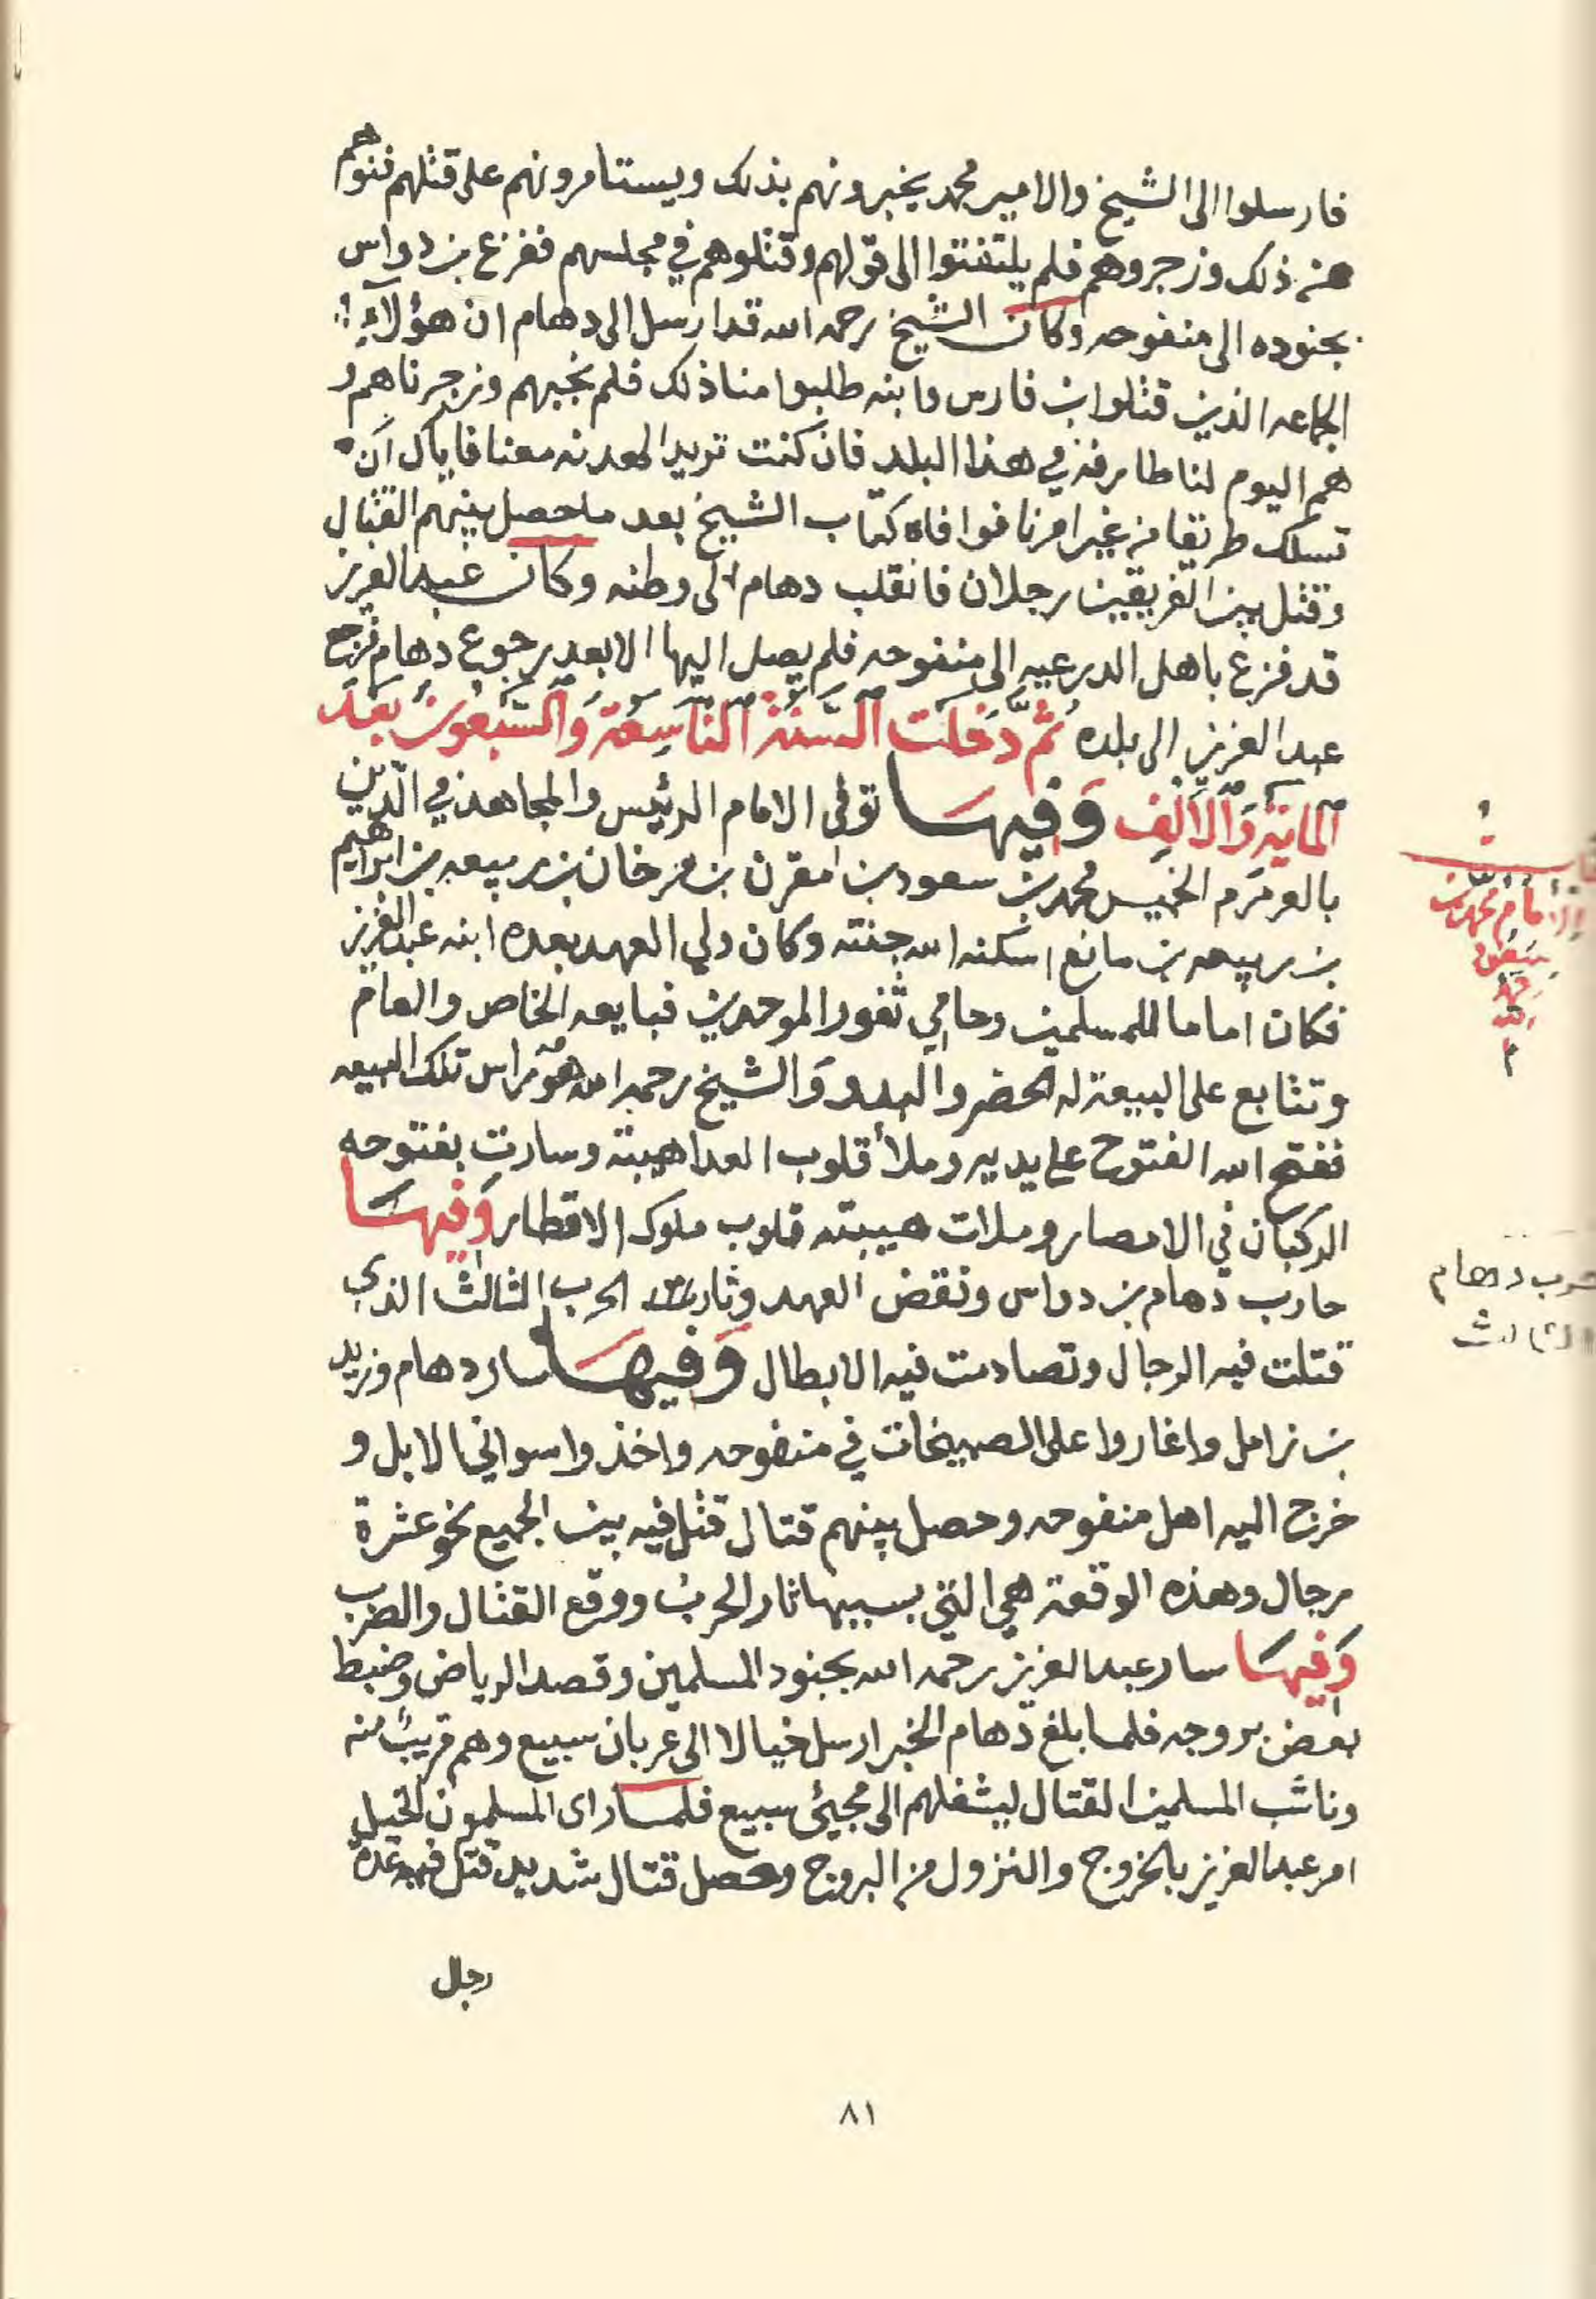 فارسلوا الى الشيخ والامير محمد يخبرونهم بذلك ويستامرونهم على قتلهم فنهوهم
عن ذلك وزجروهم فلم يلتفتوا الى قولهم وقتلوهم في مجلسهم ففزع بن دواس
بجنوده الى منفوحه وكان الشيخ رحمه الله قد ارسل الى دهام ان هؤلآءِ
الجماعه الذين قتلوا بن فارس وابنه طلبوا منا ذلك فلم نجبهم وزجرناهم و
هم اليوم لنا طارفه في هذا البلد فان كنت تريد الهدنه معنا فاياك ان
تسلك طريقا من غير امرنا فوافاه كتاب الشيخ بعد ما حصل بينهم القتال
وقتل بين الفريقين رجلان فانقلب دهام الى وطنه وكان عبد العزيز
قد فزع باهل الدرعيه الى منفوحه فلم يصل اليها الا بعد رجوع دهام فرجع
عبد العزيز الى بلده ثُمَّ دَخَلَت السَّنَةُ التَّاسِعَة وَالسَّبْعُون بَعْدَ
المايَة وَالاَلِف وَفيهَا توفى الامام الرئيس والمجاهد في الدّين
بالعرمرم الخميس محمد بن سعود بن امقرن بن مرخان بن ربيعه بن ابراهيم
بن ربيعه بن مانع اسكنه الله جنته وكان ولي العهد بعده ابنه عبد العزيز
فكان اماما للمسلمين وحامي ثغور الموحدين فبايعه الخاص والعام
وتتابع على البيعة له الحضر والبدو وَالشيخ رحمه الله هُوَ راس تلك البيعه
ففتح الله الفتوح على يديه وملأ قلوب العدا هيبته وسارت بفتوحه
الركبان في الامصار وملات هيبته قلوب ملوك الاقطار وَفيهَا
حارب دهام بن دواس ونقض العهد وثار الحرب الثالث الذي
قتلت فيه الرجال وتصادمت فيه الابطال وَفيهَا سار دهام وزيد
بن زامل واغاروا على الصبيخات في منفوحه واخذوا سواني الابل و
خرج اليه اهل منفوحه وحصل بينهم قتال قتل فيه بين الجميع نحو عشرة
رجال وهذه الوقعة هي التي بسببها ثار الحربُ ووقع القتال والضرب
وَفيهَا سار عبد العزيز رحمه الله بجنود المسلمين وقصد الرياض وضبط
بعض بروجه فلما بلغ دهام الخبر ارسل خيالا الى عربان سبيع وهم قريبٌ منه
وناشب المسلمين القتال ليشغلهم الى مجيئ سبيع فلما راى المسلمون الخيل
امر عبد العزيز بالخروج والنزول من البروج وحصل قتال شديد قتل فيه عدة
رجال
الامام محمد بن
سعود
رحمه
الله
حرب دهام
الثالث
٨١